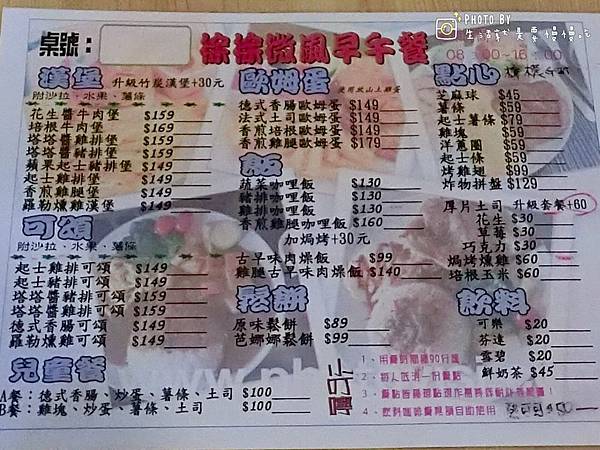 PHOTO BY
生活就是要慢慢吃
桌號：
徐徐微風早午餐
08:00~16:00
漢堡 升級竹炭漢堡+30元
附沙拉、水果、薯條
花生醬牛肉堡 $159
培根牛肉堡 $169
塔塔醬雞排堡 $159
塔塔醬豬排堡 $159
蘋果起士豬排堡 $159
起士雞排堡 $159
香煎雞腿堡 $159
羅勒燻雞漢堡 $149
可頌
附沙拉、水果、薯條
起士雞排可頌 $149
起士豬排可頌 $149
塔塔醬豬排可頌 $159
塔塔醬雞排可頌 $159
德式香腸可頌 $149
羅勒燻雞可頌 $149
兒童餐
A餐：德式香腸、炒蛋、薯條、土司 $100
B餐：雞塊、炒蛋、薯條、土司 $100
歐姆蛋 使用放山土雞蛋
德式香腸歐姆蛋 $149
法式土司歐姆蛋 $149
香煎培根歐姆蛋 $149
香煎雞腿歐姆蛋 $179
飯
蔬菜咖哩飯 $130
豬排咖哩飯 $130
雞排咖哩飯 $130
香煎雞腿咖哩飯 $160
加焗烤+30元
古早味肉燥飯 $99
雞腿古早味肉燥飯 $140
鬆餅
原味鬆餅 $89
芭娜娜鬆餅 $99
點心
芝麻球 $45
薯條 $59
起士薯條 $79
雞塊 $59
洋蔥圈 $59
起士條 $59
烤雞翅 $99
炸物拼盤 $129
厚片土司 升級套餐+60
花生 $30
草莓 $30
巧克力 $30
焗烤燻雞 $60
培根玉米 $60
飲料
可樂 $20
芬達 $20
雪碧 $20
鮮奶茶 $45
1、用餐時間為90分鐘
2、每人低消一份餐點